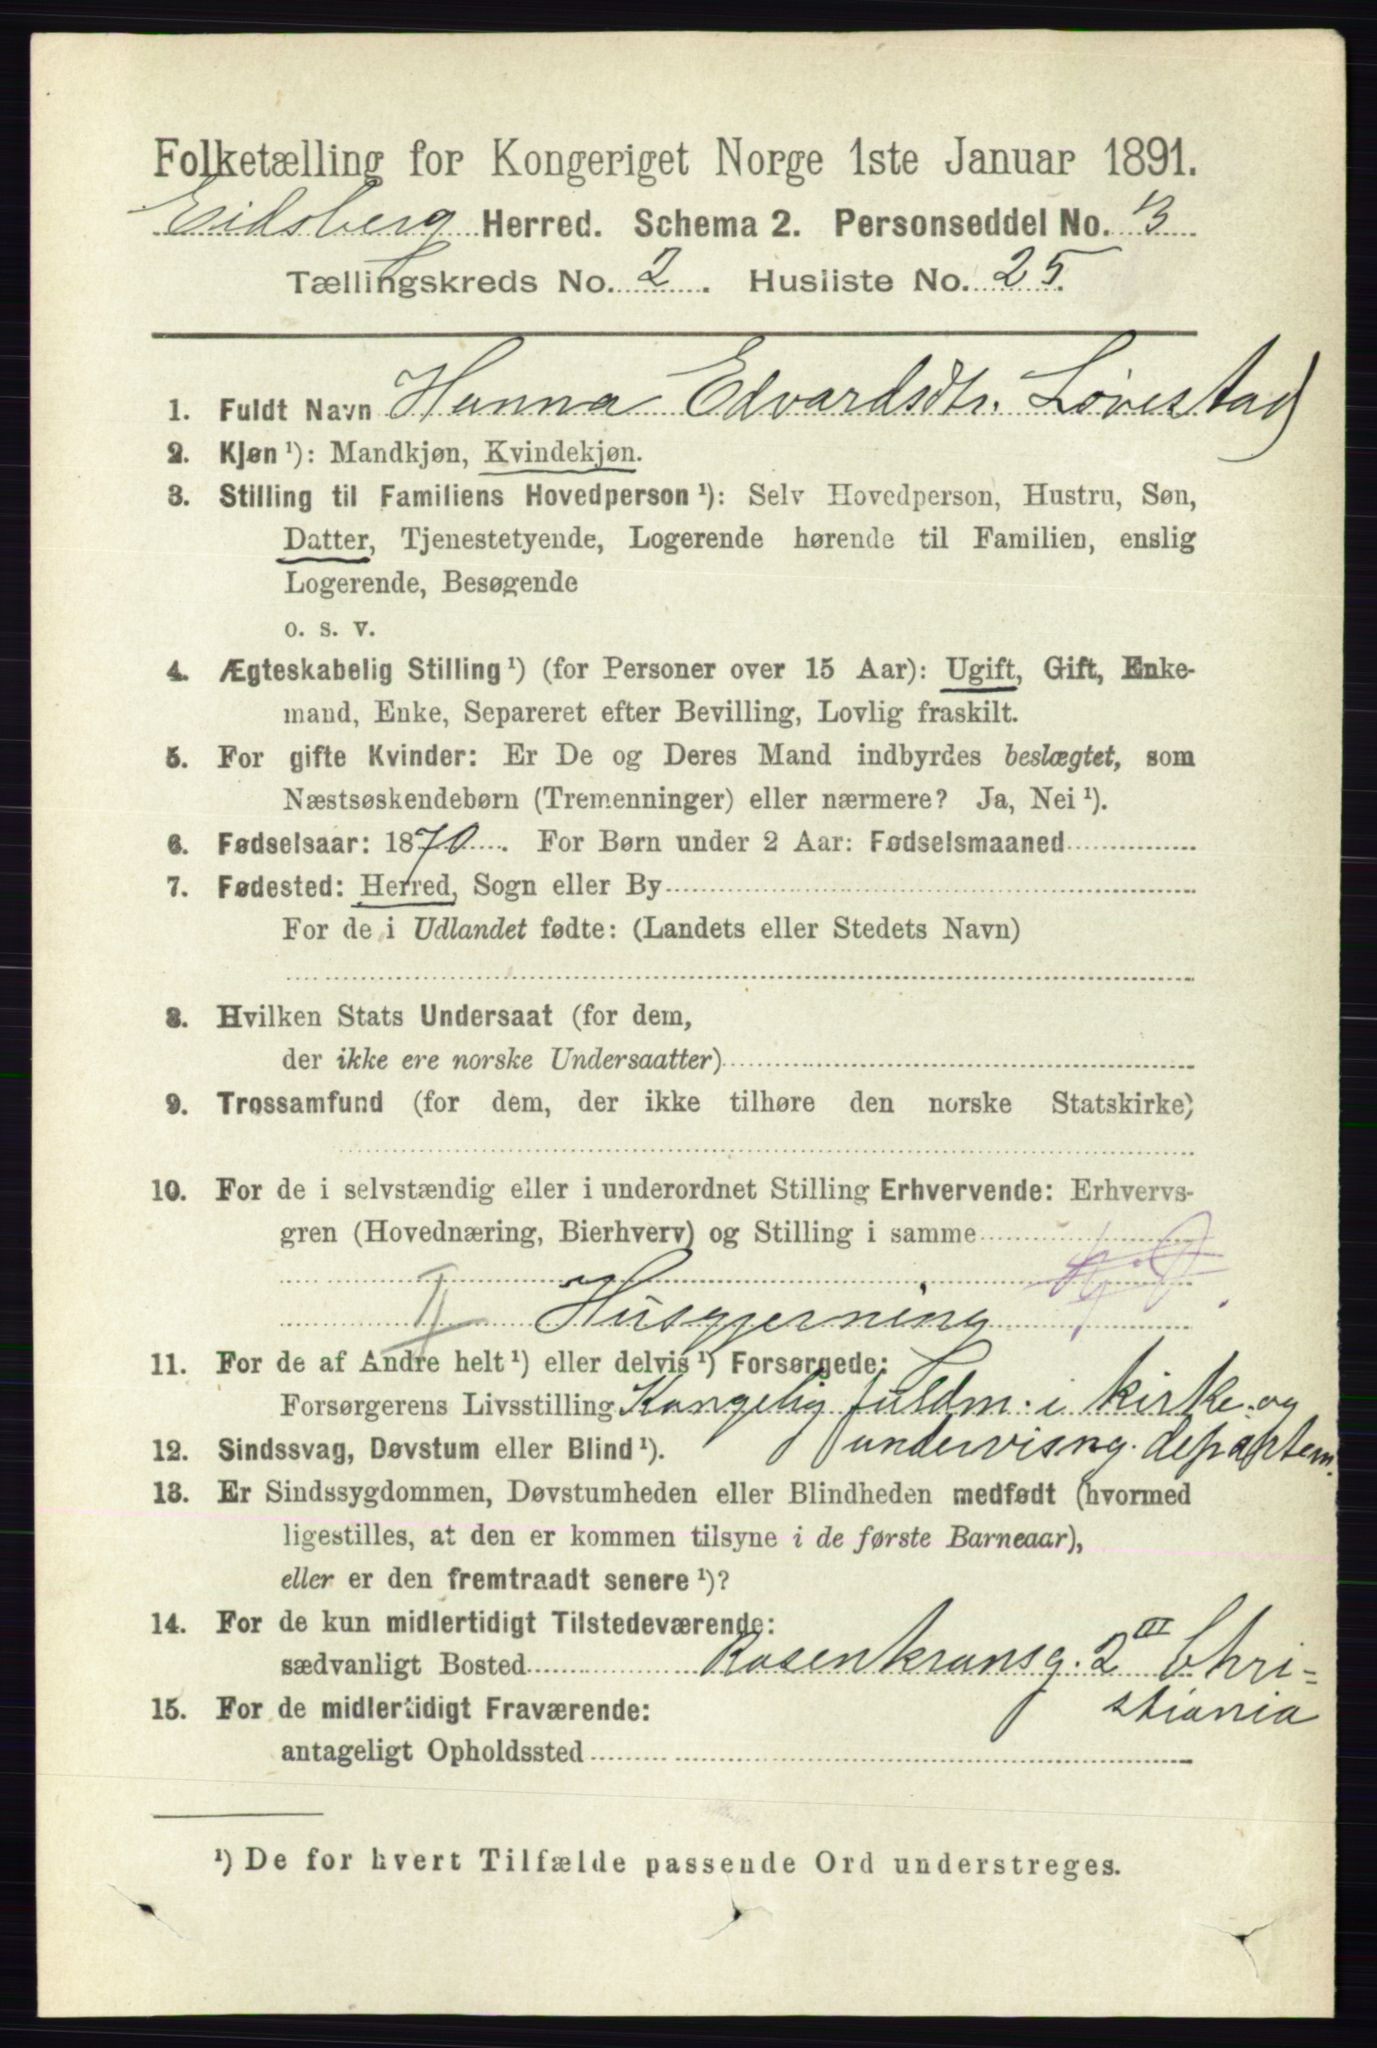 Folketælling for Kongeriget Norge 1ste Januar 1891.
Eidsberg Herred. Schema 2. Personseddel No. 13
Tællingskreds No. 2. Husliste No. 25.
1. Fuldt Navn Hanna Edvardsdtr. Løvestad
2. Kjøn¹): Mandkjøn, Kvindekjøn.
3. Stilling til Familiens Hovedperson¹): Selv Hovedperson, Hustru, Søn,
Datter, Tjenestetyende, Logerende hørende til Familien, enslig
Logerende, Besøgende
o. s. v.
4. Ægteskabelig Stilling¹) (for Personer over 15 Aar): Ugift, Gift, Enke-
mand, Enke, Separeret efter Bevilling, Lovlig fraskilt.
5. For gifte Kvinder: Er De og Deres Mand indbyrdes beslægtet, som
Næstsøskendebørn (Tremenninger) eller nærmere? Ja, Nei¹).
6. Fødselsaar: 1870. For Børn under 2 Aar: Fødselsmaaned
7. Fødested: Herred, Sogn eller By
For de i Udlandet fødte: (Landets eller Stedets Navn)
8. Hvilken Stats Undersaat (for dem,
der ikke ere norske Undersaatter)
9. Trossamfund (for dem, der ikke tilhøre den norske Statskirke)
10. For de i selvstændig eller i underordnet Stilling Erhvervende: Erhvervs-
gren (Hovednæring, Bierhverv) og Stilling i samme
II Husgjerning
11. For de af Andre helt¹) eller delvis¹) Forsørgede:
Forsørgerens Livsstilling Kongelig fuldm. i kirke- og
undervisng. departem.
12. Sindssvag, Døvstum eller Blind¹).
13. Er Sindssygdommen, Døvstumheden eller Blindheden medfødt (hvormed
ligestilles, at den er kommen tilsyne i de første Barneaar),
eller er den fremtraadt senere¹)?
14. For de kun midlertidigt Tilstedeværende:
sædvanligt Bosted Rosenkransg. 2 III Chri-
stiania
15. For de midlertidigt Fraværende:
antageligt Opholdssted
¹) De for hvert Tilfælde passende Ord understreges.